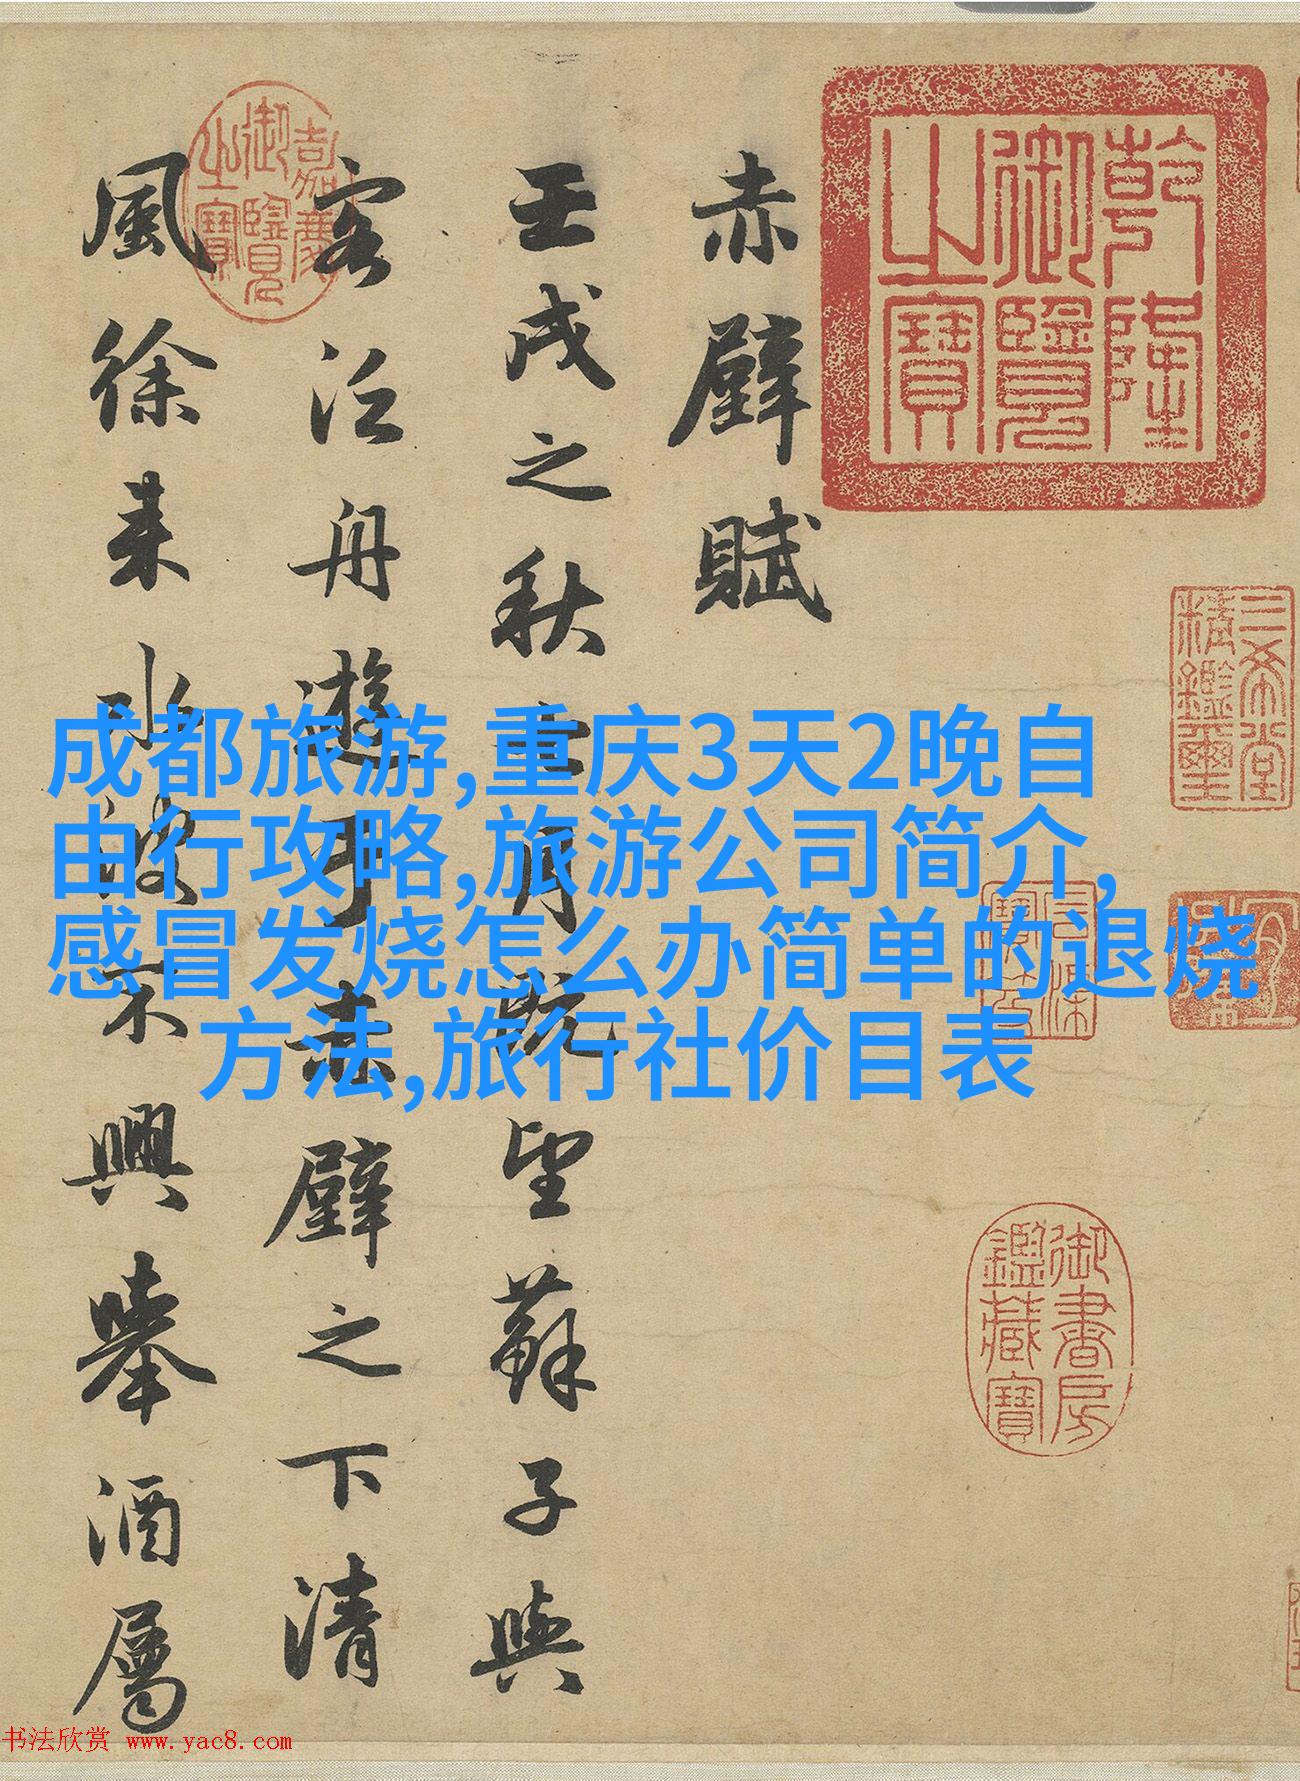 乾隆
御覽
之寶
三希堂
精鑑璽
御書房
鑑藏寶
赤壁賦
壬戌之秋七月既望蘇子與
客泛舟遊於赤壁之下清
風徐來水波不興舉酒屬
嘉慶
御覽
之寶
成都旅游,重庆3天2晚自
由行攻略,旅游公司简介,
感冒发烧怎么办简单的退烧
方法,旅行社价目表
书法欣赏 www.yac8.com